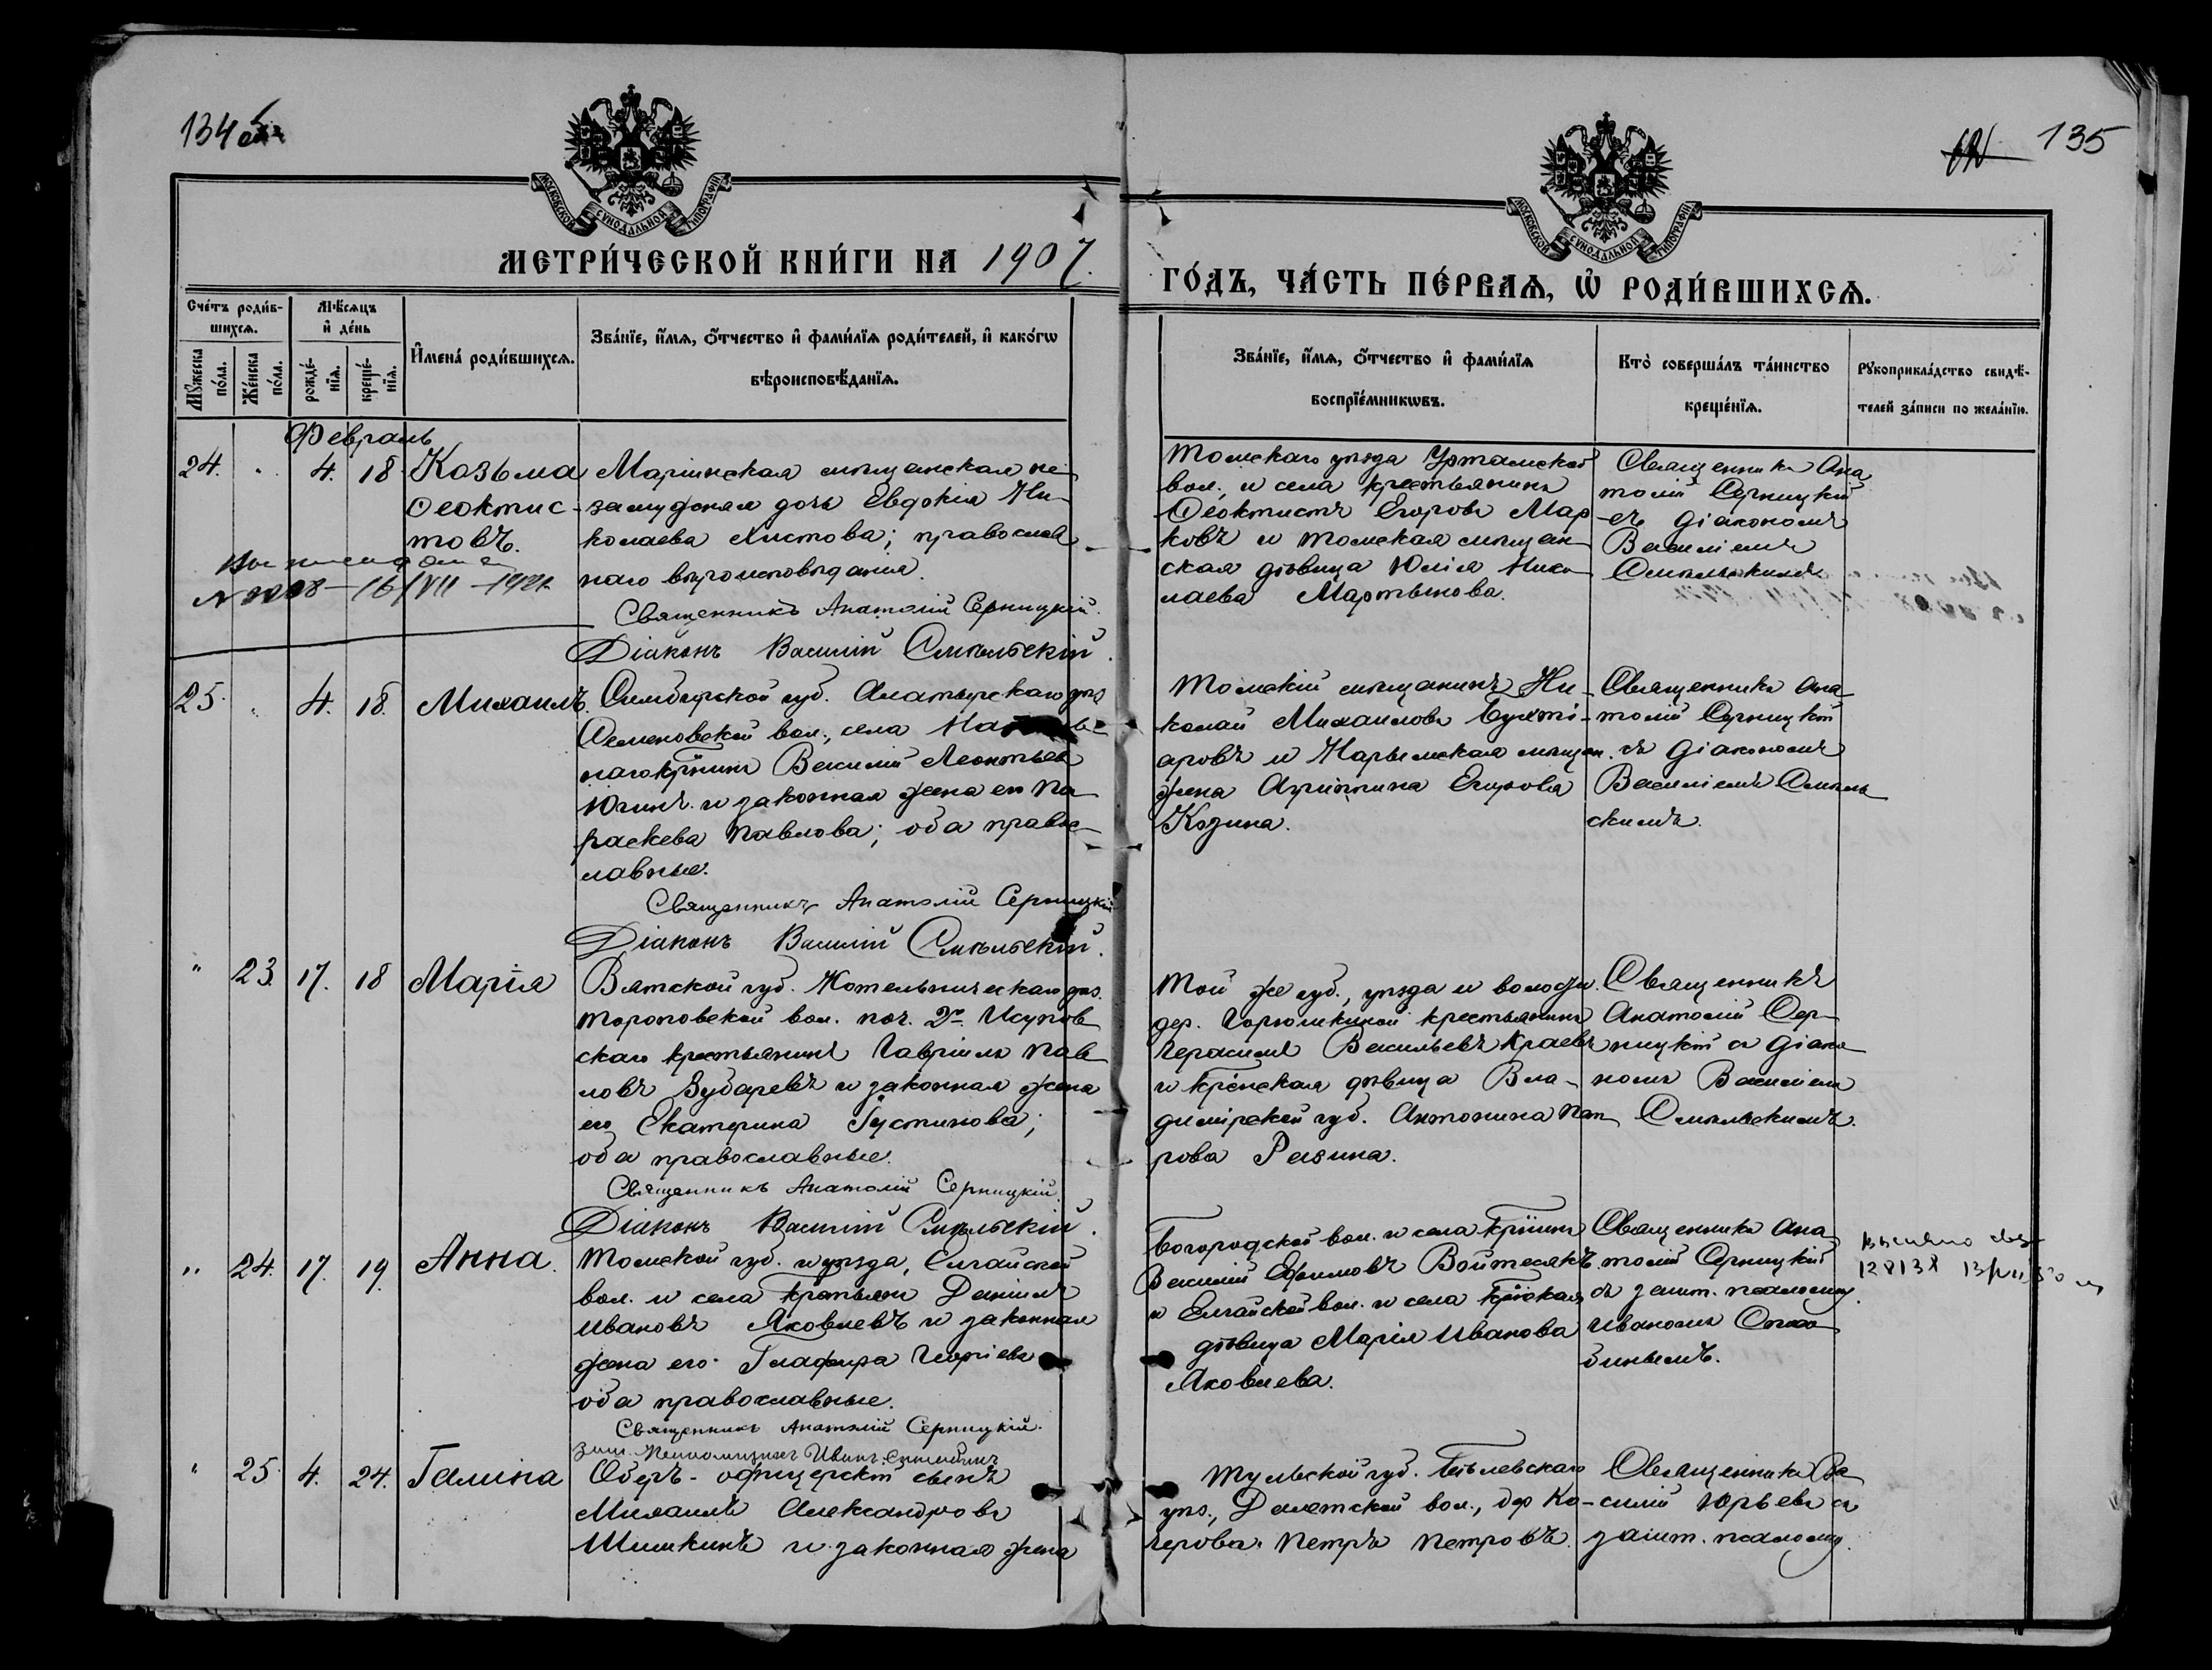 134
135
МОСКОВСКОЙ СѴНОДАЛЬНОЙ ТИПОГРАФІИ
МОСКОВСКОЙ СѴНОДАЛЬНОЙ ТИПОГРАФІИ
МЕТРИ́ЧЕСКОЙ КНИ́ГИ НА 1907.
ГО́ДЪ, ЧА́СТЬ ПЕ́РВАѦ, Ѡ҆ РОДИ́ВШИХСѦ.
Сче́тъ роди́в-
шихсѧ.
Мꙋ́жеска по́ла.
Же́нска по́ла.
Мѣ́сѧцъ
и҆ де́нь
рожде́-
нїѧ.
креще́-
нїѧ.
И҆мена̀ роди́вшихсѧ.
Зва́нїе, и҆́мѧ, ѻ҆́тчество и҆ фами́лїѧ роди́телей, и҆ како́гѡ
вѣроисповѣ́данїѧ.
Зва́нїе, и҆́мѧ, ѻ҆́тчество и҆ фами́лїѧ
воспрїе́мникѡвъ.
Кто̀ соверша́лъ та́инство
креще́нїѧ.
Рꙋкоприкла́дство свидѣ́-
телей за́писи по жела́нїю.
Февраль
24. " 4. 18. Козьма
Ѳеоктис-
товъ.
Маріинская мѣщанская не-
замужняя дочь Евдокія Ни-
колаева Листова; православ
наго вѣроисповѣданія.
Священникъ Анатолій Серницкій.
Діаконъ Василій Смѣльскій.
Томскаго уѣзда Уртамской
вол., и села крестьянинъ
Ѳеоктистъ Егоровъ Мар
ковъ и томская мѣщан
ская дѣвица Юлія Нико
лаева Мартынова.
Священникъ Ана
толій Серницкій
съ діакономъ
Василіемъ
Смѣльскимъ
16/VII
25. " 4. 18. Михаилъ.
Симбирской губ. Алатырскаго уѣз
Семеновской вол., села
кр̃нинъ Василій Леонтьевъ
Югинъ и законная жена его Па
раскева Павлова; оба правос-
лавные.
Священникъ Анатолій Серницкій
Діаконъ Василій Смѣльскій.
Томскій мѣщанинъ Ни-
колай Михаиловъ Бухті-
аровъ и Нарымская мѣщан.
жена Агриппина Егорова
Козина.
Священникъ Ана-
толій Серницкій
съ діакономъ
Василіемъ Смѣль
скимъ.
" 23. 17. 18 Марія
Вятской губ. Котельническаго уѣз.
Тороповской вол. поч. 2го Исупов
скаго крестьянинъ Гавріилъ Пав
ловъ Зубаревъ и законная жена
его Екатерина Іустинова;
оба православные.
Священникъ Анатолій Серницкій.
Діаконъ Василій Смѣльскій.
Той же губ., уѣзда и волости.
дер. Горюшкиной крестьянинъ
Герасимъ Васильевъ Краевъ
и кр̃нская дѣвица Вла-
димірской губ. Антонина Пет
рова Разина.
Священникъ
Анатолій Сер-
ницкій съ діако
номъ Василіемъ
Смѣльскимъ.
" 24. 17. 19. Анна.
Томской губ. и уѣзда, Елгайской
вол. и села кр̃тьянинъ Даніилъ
Ивановъ Яковлевъ и законная
жена его Глафира Георгіева
оба православные.
Священникъ Анатолій Серницкій.
Богородской вол. и села кр̃нинъ
Василій Ефимовъ Войтесякъ
и Елгайской вол. и села кр̃нская
дѣвица Марія Иванова
Яковлева.
Священникъ Ана
толій Серницкій
съ зашт. псаломщ
Иваномъ
" 25. 4. 24. Галина
Оберъ-офицерскій сынъ
Михаилъ Александровъ
Шишкинъ и законная жена
Тульской губ. Бѣлевскаго
уѣз., вол., дер Ко-
черова Петръ Петровъ.
Священникъ Ва
силій Юрьевъ съ
зашт. псаломщ.